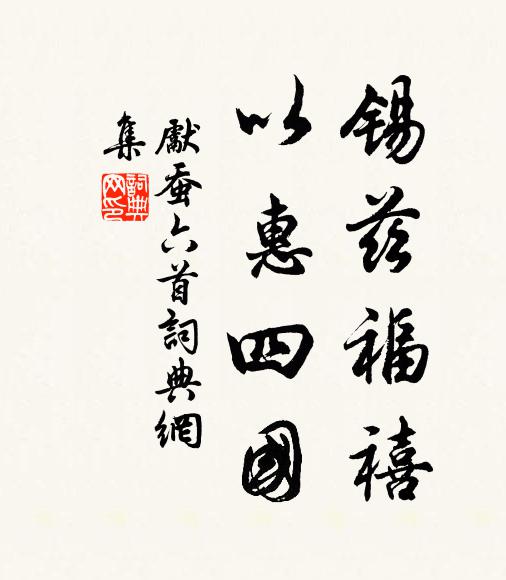 錫茲福禧
以惠四國
獻蚕六首詞典網
集
詞典
网印